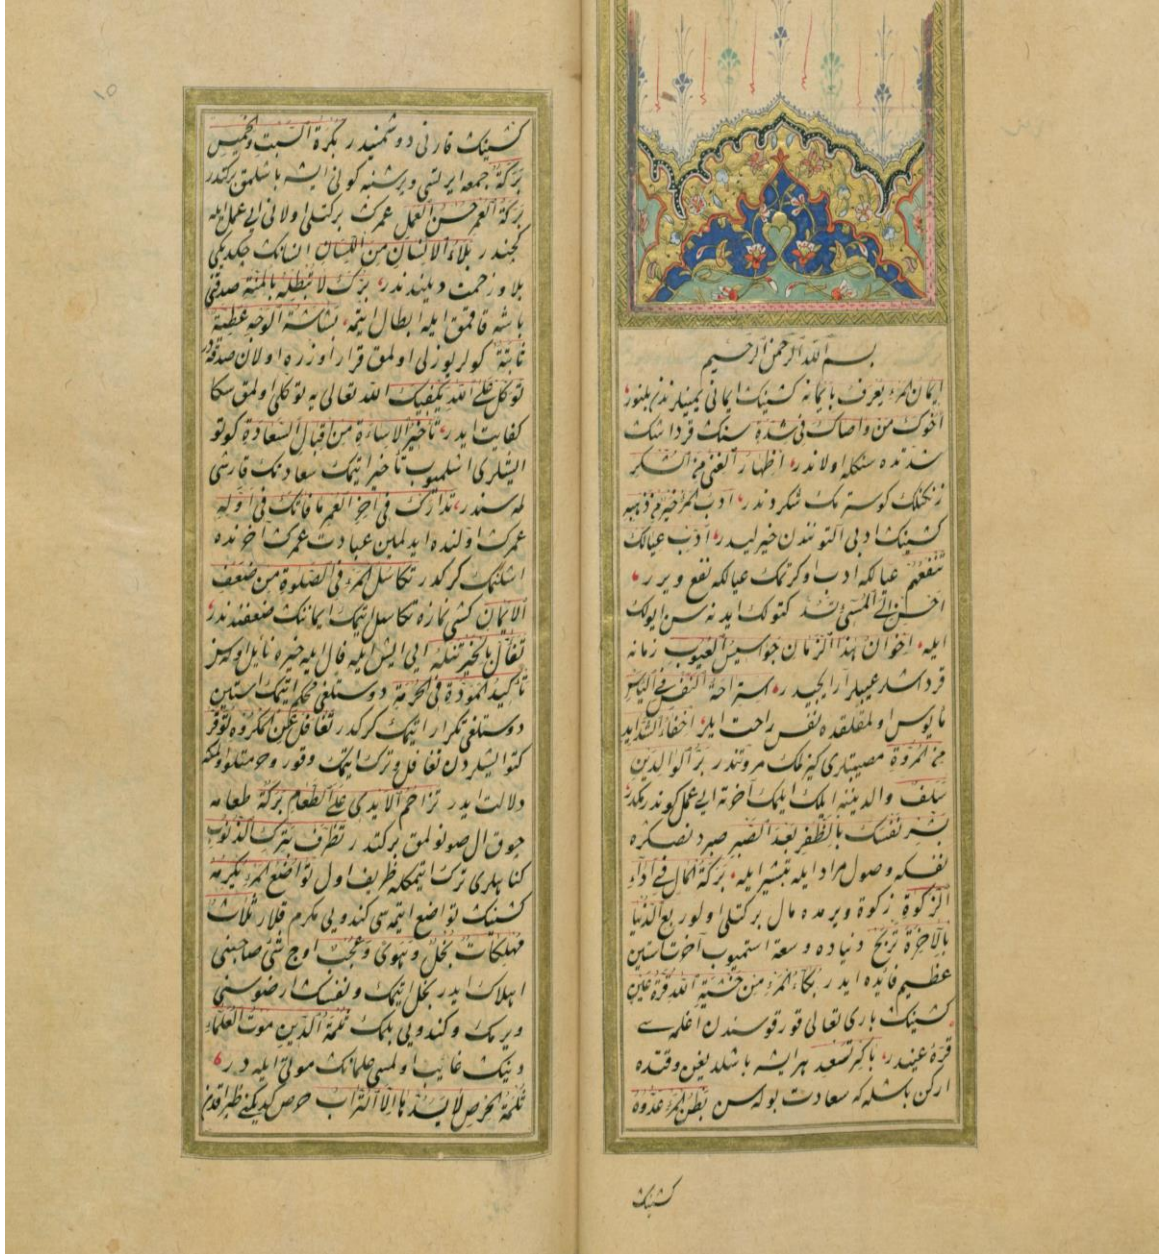 بسم الله الرحمن الرحيم
ايمان المرء يعرف بايمانه كشينك ايمانى يمينلرندن بلنور
اخوك من واساك فى شدة سنك قرداشك
شدتده سنكله اولاندر اظهار الغنى من الشكر
زنكنلك كوسترمك شكردندر ادب المرء خير من ذهبه
كشينك ادبى التوندن خيرليدر ادب عيالك
تنفعهم عيالكه ادب اوكرتمك عيالكه نفع ويرر
احسن الى المسىء تسد كتولك ايدنه سن ايولك
ايله اخوان هذا الزمان جواسيس العيوب زمانه
قرداشلر عيبلر ارايجيدر استراحة النفس فى الياس
مايوس اولمقلقده نفس راحت ايلر اخفاء الشدايد
من المروة مصيبتلرى كيزلمك مروتندر بر الوالدين
سلف والدينه ايلك ايلمك آخرته ايى عمل كوندرمكدر
بشر نفسك بالظفر بعد الصبر صبردنصكره
نفسكه وصول مراد ايله تبشير ايله بركة المال فى اداء
الزكوة زكوة ويرمده مال بركتلى اولور بع الدنيا
بالاخرة تربح دنياده وسعة استميوب آخرت استين
عظيم فائده ايدر بكاء المرء من خشية الله قرة عين
كشينك بارى تعالى قورقوسندن اغلمسى
قرة عيندر باكر تسعد هر ايشه باشلديغين وقتده
اركن باشله كه سعادت بوله سن بطن المرء عدوه
كشينك
كشينك قارنى دوشمنيدر بكرة السبت والخميس
بركة جمعه ايرتسى وپرشنبه كونى ايشه باشلمق بركتدر
بركة العمر حسن العمل عمرك بركتلى اولانى ايى عمل ايله
كچندر بلاء الانسان من اللسان انسانك چكديكى
بلا وزحمت ديلندندر برك لا تبطله بالمنة صدقنى
باشه قاقمق ايله ابطال ايتمه بشاشة الوجه عطية
ثابتة كولريوزلى اولمق قرار اوزره اولان صدقه در
توكل على الله يكفيك الله تعالى يه توكلى اولمق سكا
كفايت ايدر تأخير الاساءة من اقبال السعادة كوتو
ايشلرى اشلميوب تاخير ايتمك سعادتك قارشى
لمسندر تدارك فى اخر العمر ما فاتك فى اوله
عمرك اولنده ايدلمين عبادت عمرك آخرنده
اشلنمك كركدر تكاسل المرء فى الصلوة من ضعف
الايمان كشى نمازه تكاسل ايتمك ايمانك ضعفندندر
تفأل بالخير تنله ايى ايش ايله فال ايله خيره نائل اولورسن
تاكيد المودة فى الحرمة دوستلغى محكم ايتمك استين
دوستلغى تكرار ايتمك كركدر تغافل عن المكروه توقر
كتوايشلردن تغافل وترك ايتمك وقور وحرمتلو اولمغه
دلالت ايدر تزاحم الايدى على الطعام بركة طعامه
چوق ال صونولمق بركتدر تطرف بترك الذنوب
كناهلرى ترك ايتمكله ظريف اول تواضع المرء يكرمه
كشينك تواضع ايتمسى كندويى مكرم قلار ثلاث
مهلكات بخل وهوى وعجب اوچ شى صاحبنى
اهلاك ايدر بخل ايتمك ونفسك ارضوسنى
ويرمك وكندويى بلمك ثلمة الدين موت العلماء
دينك غائب اولمسى علمانك موتى ايله در
ثلمة الحرص لا يسدها الا التراب حرص كديكنى طپراقدن